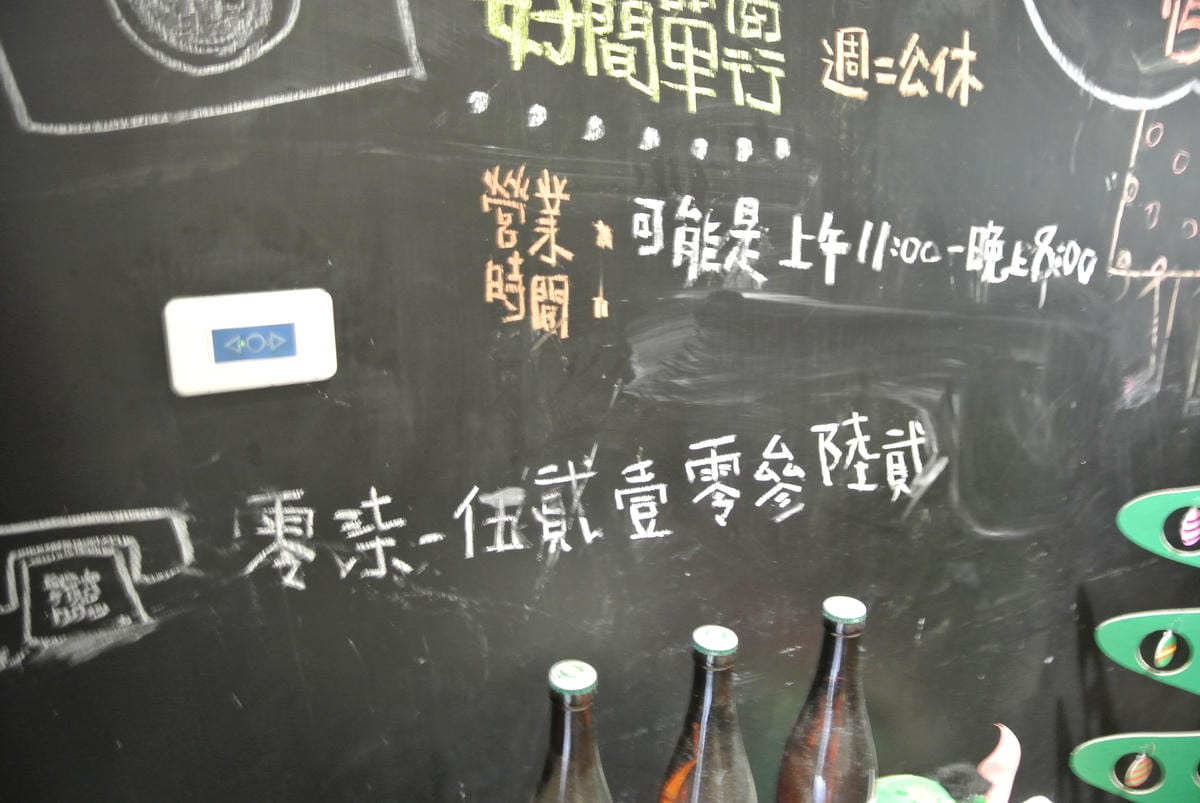 好簡單面行
週二公休
營業時間：可能是上午11:00-晚上8:00
零柒-伍貳壹零參陸貳